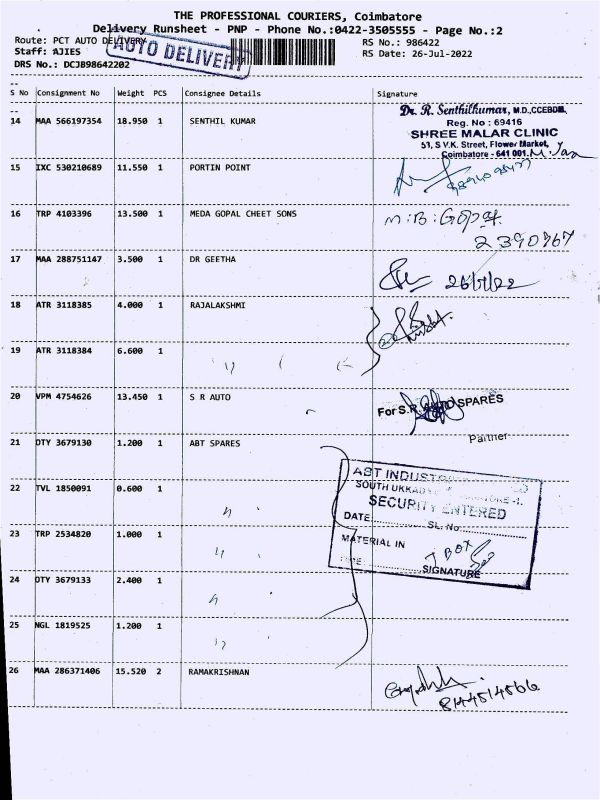 THE PROFESSIONAL COURIERS, Coimbatore
Delivery Runsheet - PNP - Phone No.:0422-3505555 - Page No.:2
Route: PCT AUTO DELIVERY
AUTO DELIVERY
RS No.: 986422
Staff: AJIES
RS Date: 26-Jul-2022
DRS No.: DCJB98642202
S No Consignment No Weight PCS Consignee Details Signature
14 MAA 566197354 18.950 1 SENTHIL KUMAR
Dr. R. Senthilkumar, M.D.,CCEBDM,
Reg. No : 69416
SHREE MALAR CLINIC
51, S.V.K. Street, Flower Market,
Coimbatore - 641 001.
15 IXC 530210689 11.550 1 PORTIN POINT
16 TRP 4103396 13.500 1 MEDA GOPAL CHEET SONS
M:B:Gopal
2390767
17 MAA 288751147 3.500 1 DR GEETHA
26/7/22
18 ATR 3118385 4.000 1 RAJALAKSHMI
19 ATR 3118384 6.600 1
20 VPM 4754626 13.450 1 S R AUTO
For S.R. AUTO SPARES
Partner
21 OTY 3679130 1.200 1 ABT SPARES
22 TVL 1850091 0.600 1
ABT INDUSTRIES
SOUTH UKKADAM
SECURITY ENTERED
DATE SL. No.
MATERIAL IN
SIGNATURE
23 TRP 2534820 1.000 1
24 OTY 3679133 2.400 1
25 NGL 1819525 1.200 1
26 MAA 286371406 15.520 2 RAMAKRISHNAN